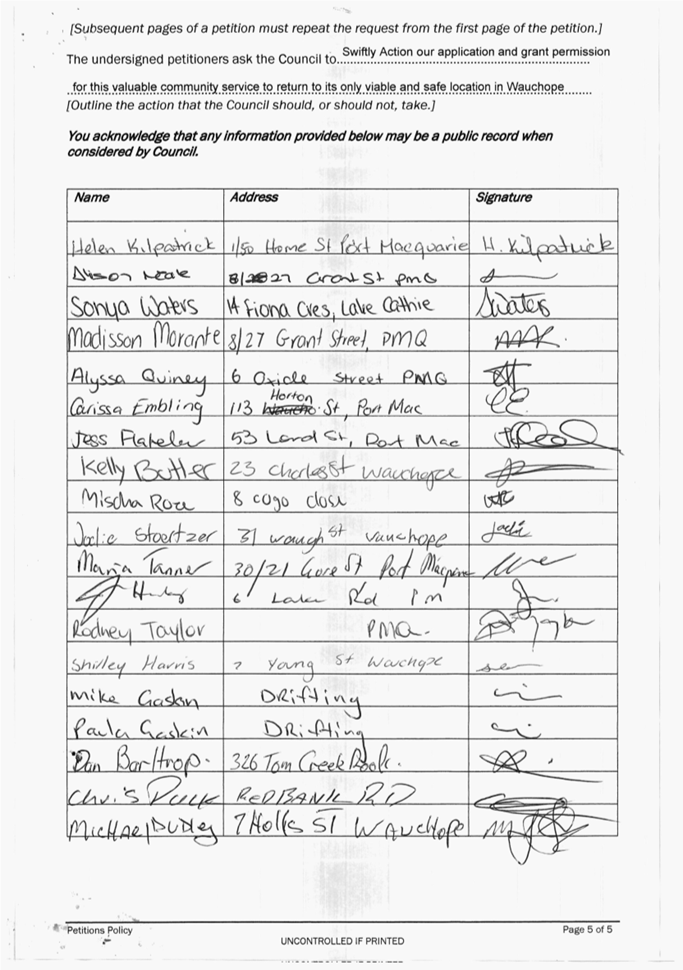 [Subsequent pages of a petition must repeat the request from the first page of the petition.]
The undersigned petitioners ask the Council to Swiftly Action our application and grant permission
for this valuable community service to return to its only viable and safe location in Wauchope
[Outline the action that the Council should, or should not, take.]
You acknowledge that any information provided below may be a public record when
considered by Council.
Name Address Signature
Helen Kilpatrick 1/50 Home St Port Macquarie H. Kilpatrick
Alison Neale 8/27 Grant St PMQ
Sonya Waters 14 Fiona Cres, Lake Cathie SWaters
Madisson Morante 8/27 Grant Street, PMQ
Alyssa Quiney 6 Oxide Street PMQ
Carissa Embling 113 Horton St, Port Mac CE
Jess 53 Lord St, Port Mac
Kelly Butler 23 Charles St Wauchope
Mischa Roza 8 cogo close
Jodie Stoertzer 31 waugh St Wauchope Jodi
Maria Tanner 30/21 Gore St Port Macquarie
6 Lake Rd PM
Rodney Taylor PMQ.
Shirley Harris 7 Young St Wauchope
Mike Gaskin DRifting
Paula Gaskin DRifting
Dan Barltrop. 326 Tom Creek
Chris REDBANK RD
Michael Dudley 7 Hollis ST WAUCHOPE
Petitions Policy Page 5 of 5
UNCONTROLLED IF PRINTED